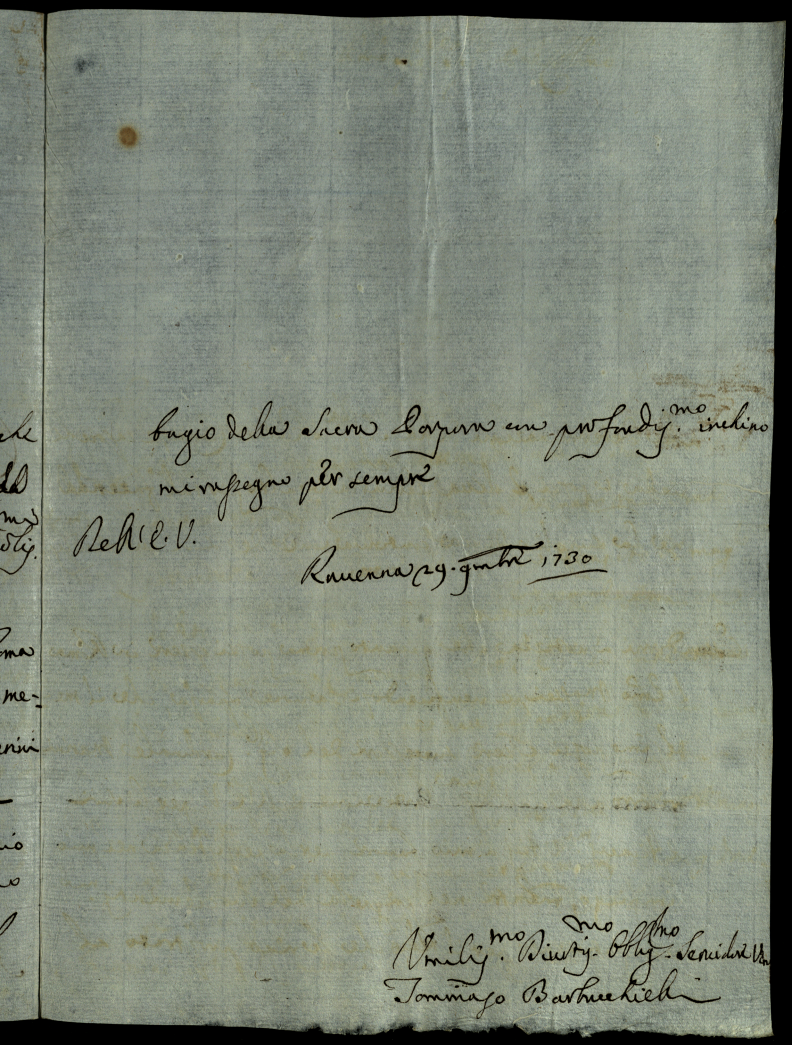 bagio della Sacra Porpora con profondiss.mo inchino
mi rassegno per sempre
Dell'E. V.
Ravenna 29. 9mbre 1730
Umiliss.mo Divotiss.mo Obblig.mo Servidore
Tommaso Barbucchielli